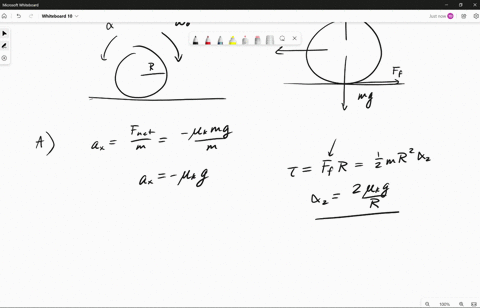 Microsoft Whiteboard
Whiteboard 10
Just now
α
R
F_f
mg
A) a_x = F_net/m = -μ_k mg/m
a_x = -μ_k g
τ = F_f R = 1/2 m R² α_z
α_z = 2 μ_k g/R
100%